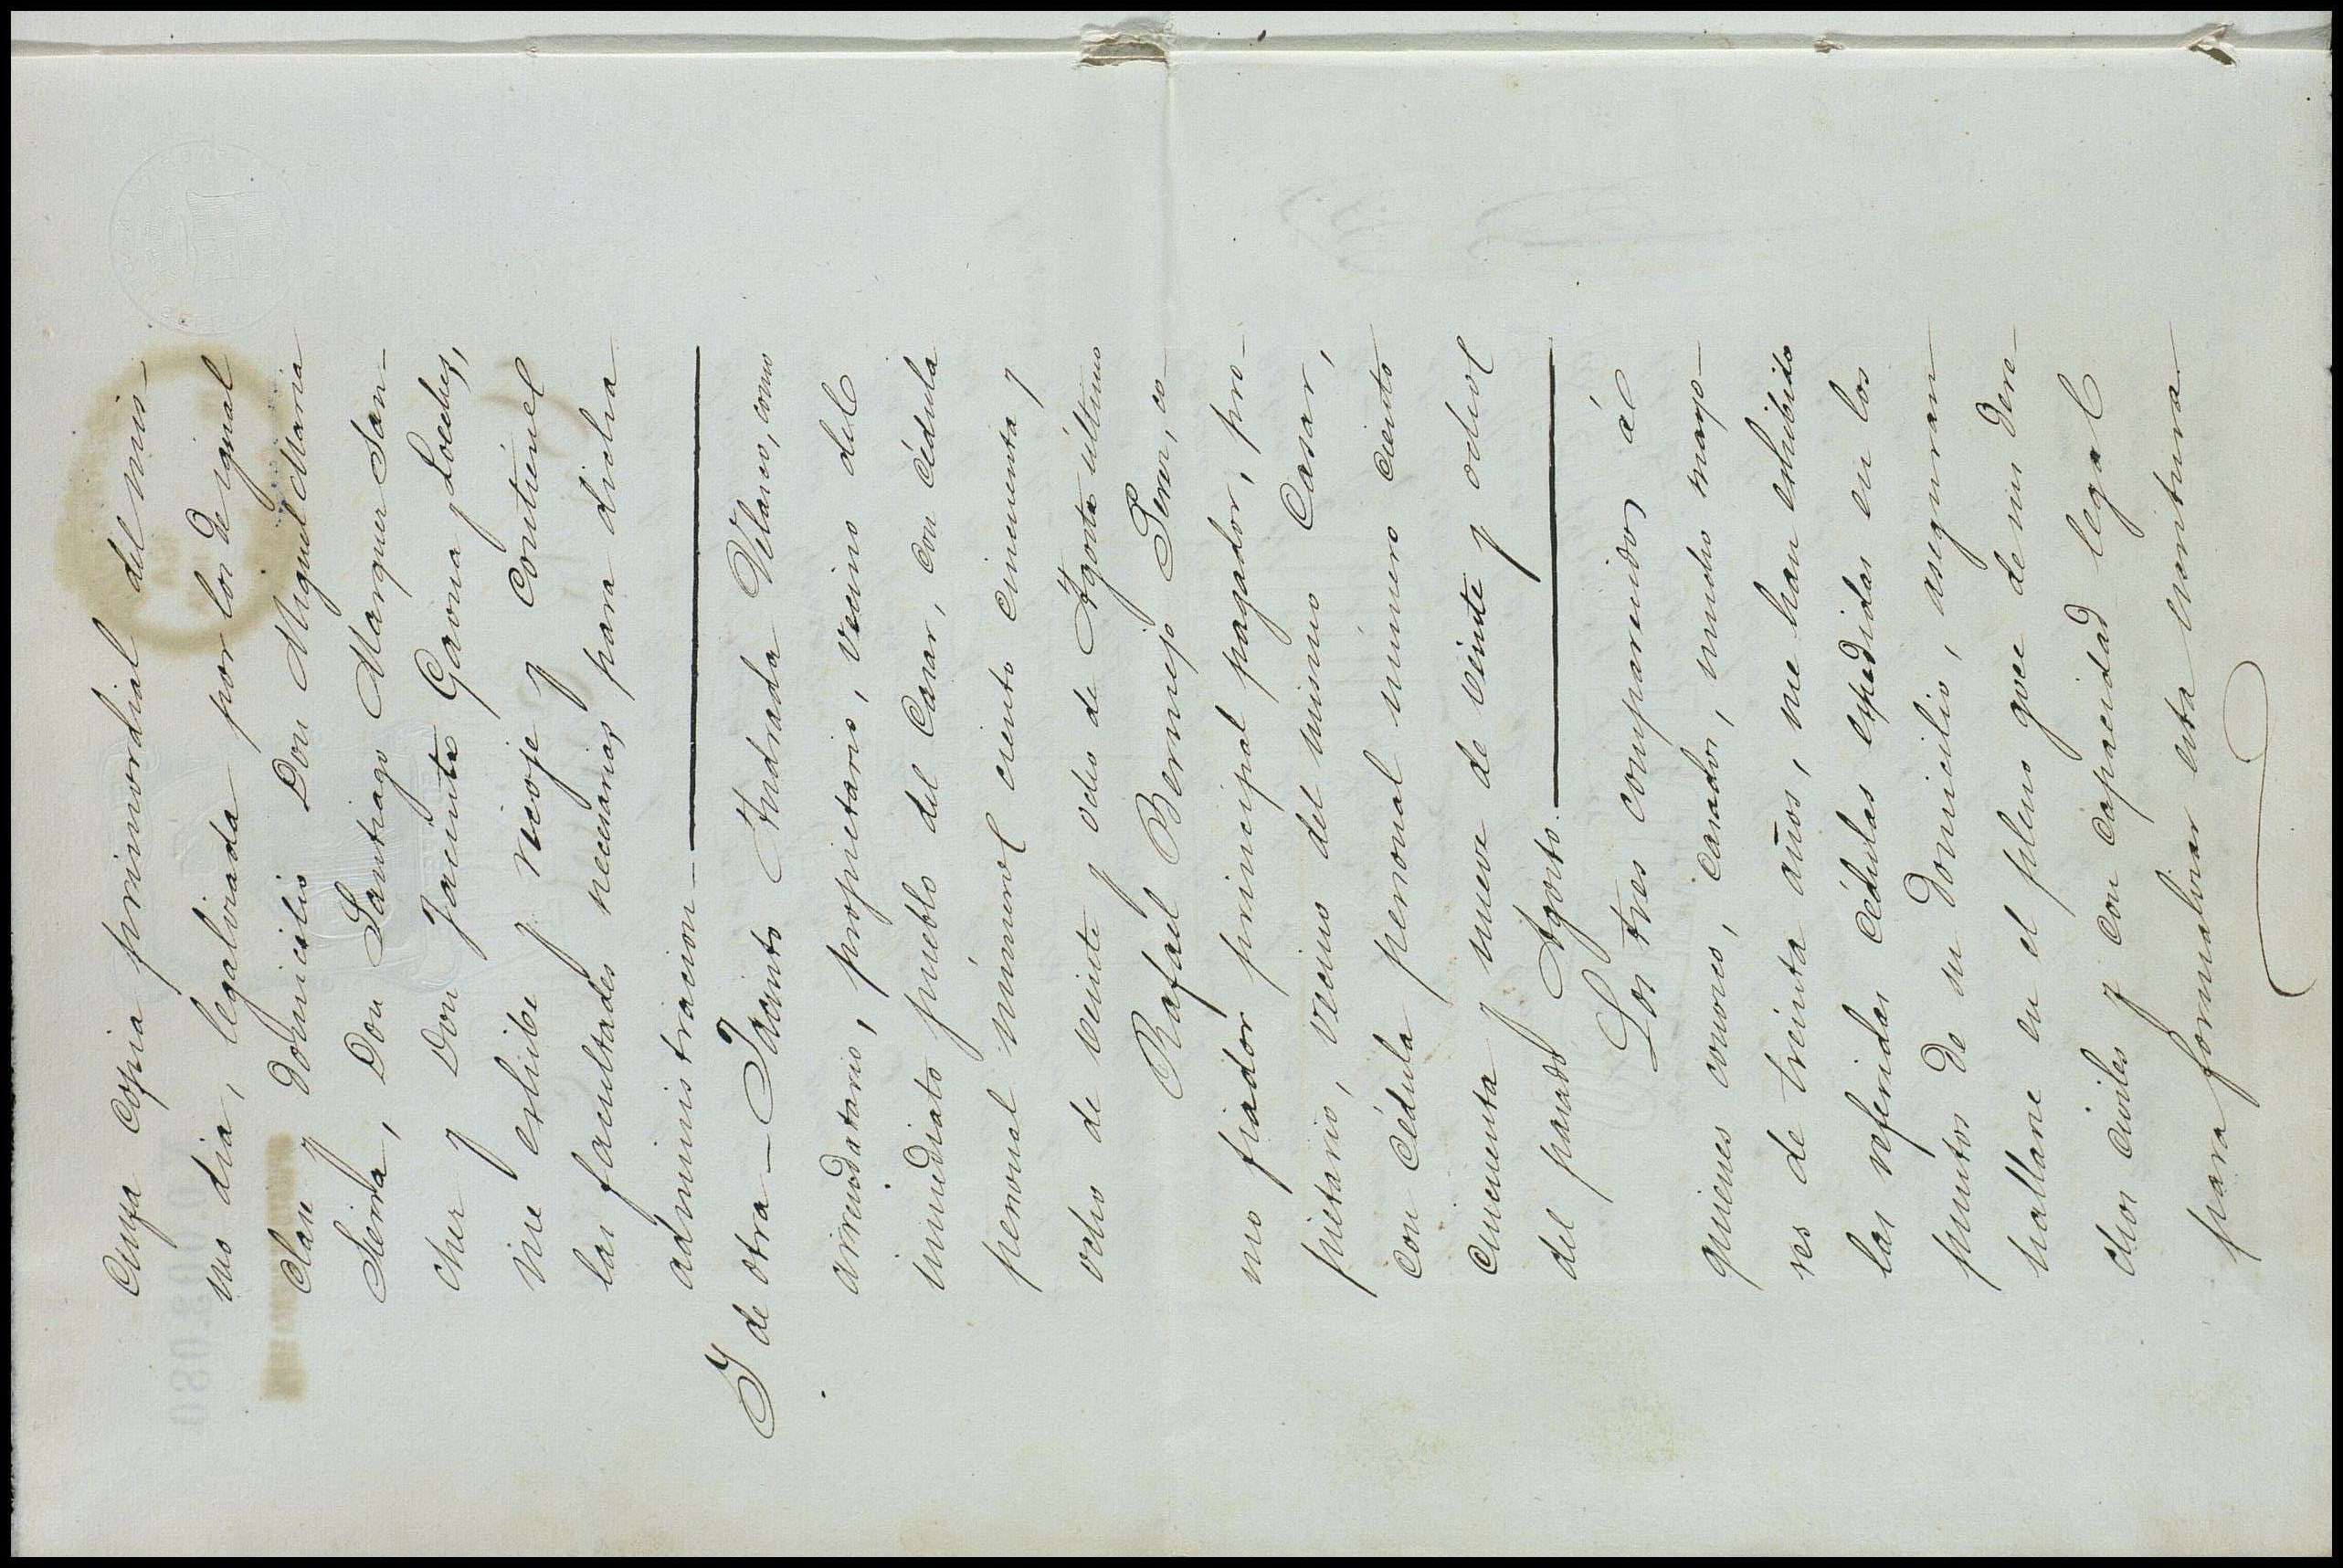 Cuya copia primordial del mis-
mo dia, legalizada por los de igual
clase y domicilio Don Miguel Maria
Sierra, Don Santiago Marquez San-
chez y Don Jacinto Gaona y Loeches,
me exhibe y recoje y contiene
las facultades necesarias para dicha
administracion
Y de otra - Jacinto Andrada Velasco, como
arrendatario, propietario, vecino del
inmediato pueblo del Casar, con cédula
personal número ciento cincuenta y
ocho de veinte y ocho de Agosto último
Rafael Bermejo Perez, co-
mo fiador principal pagador, pro-
pietario, vecino del mismo Casar,
con cédula personal número ciento
cincuenta y nueve de veinte y ocho
del pasado Agosto.
Los tres comparecidos á
quienes conozco, casados, mucho mayo-
res de treinta años, me han exhibido
las referidas cédulas espedidas en los
puntos de su domicilio, aseguran
hallarse en el pleno goce de sus dere-
chos civiles y con capacidad legal
para formalizar esta escritura